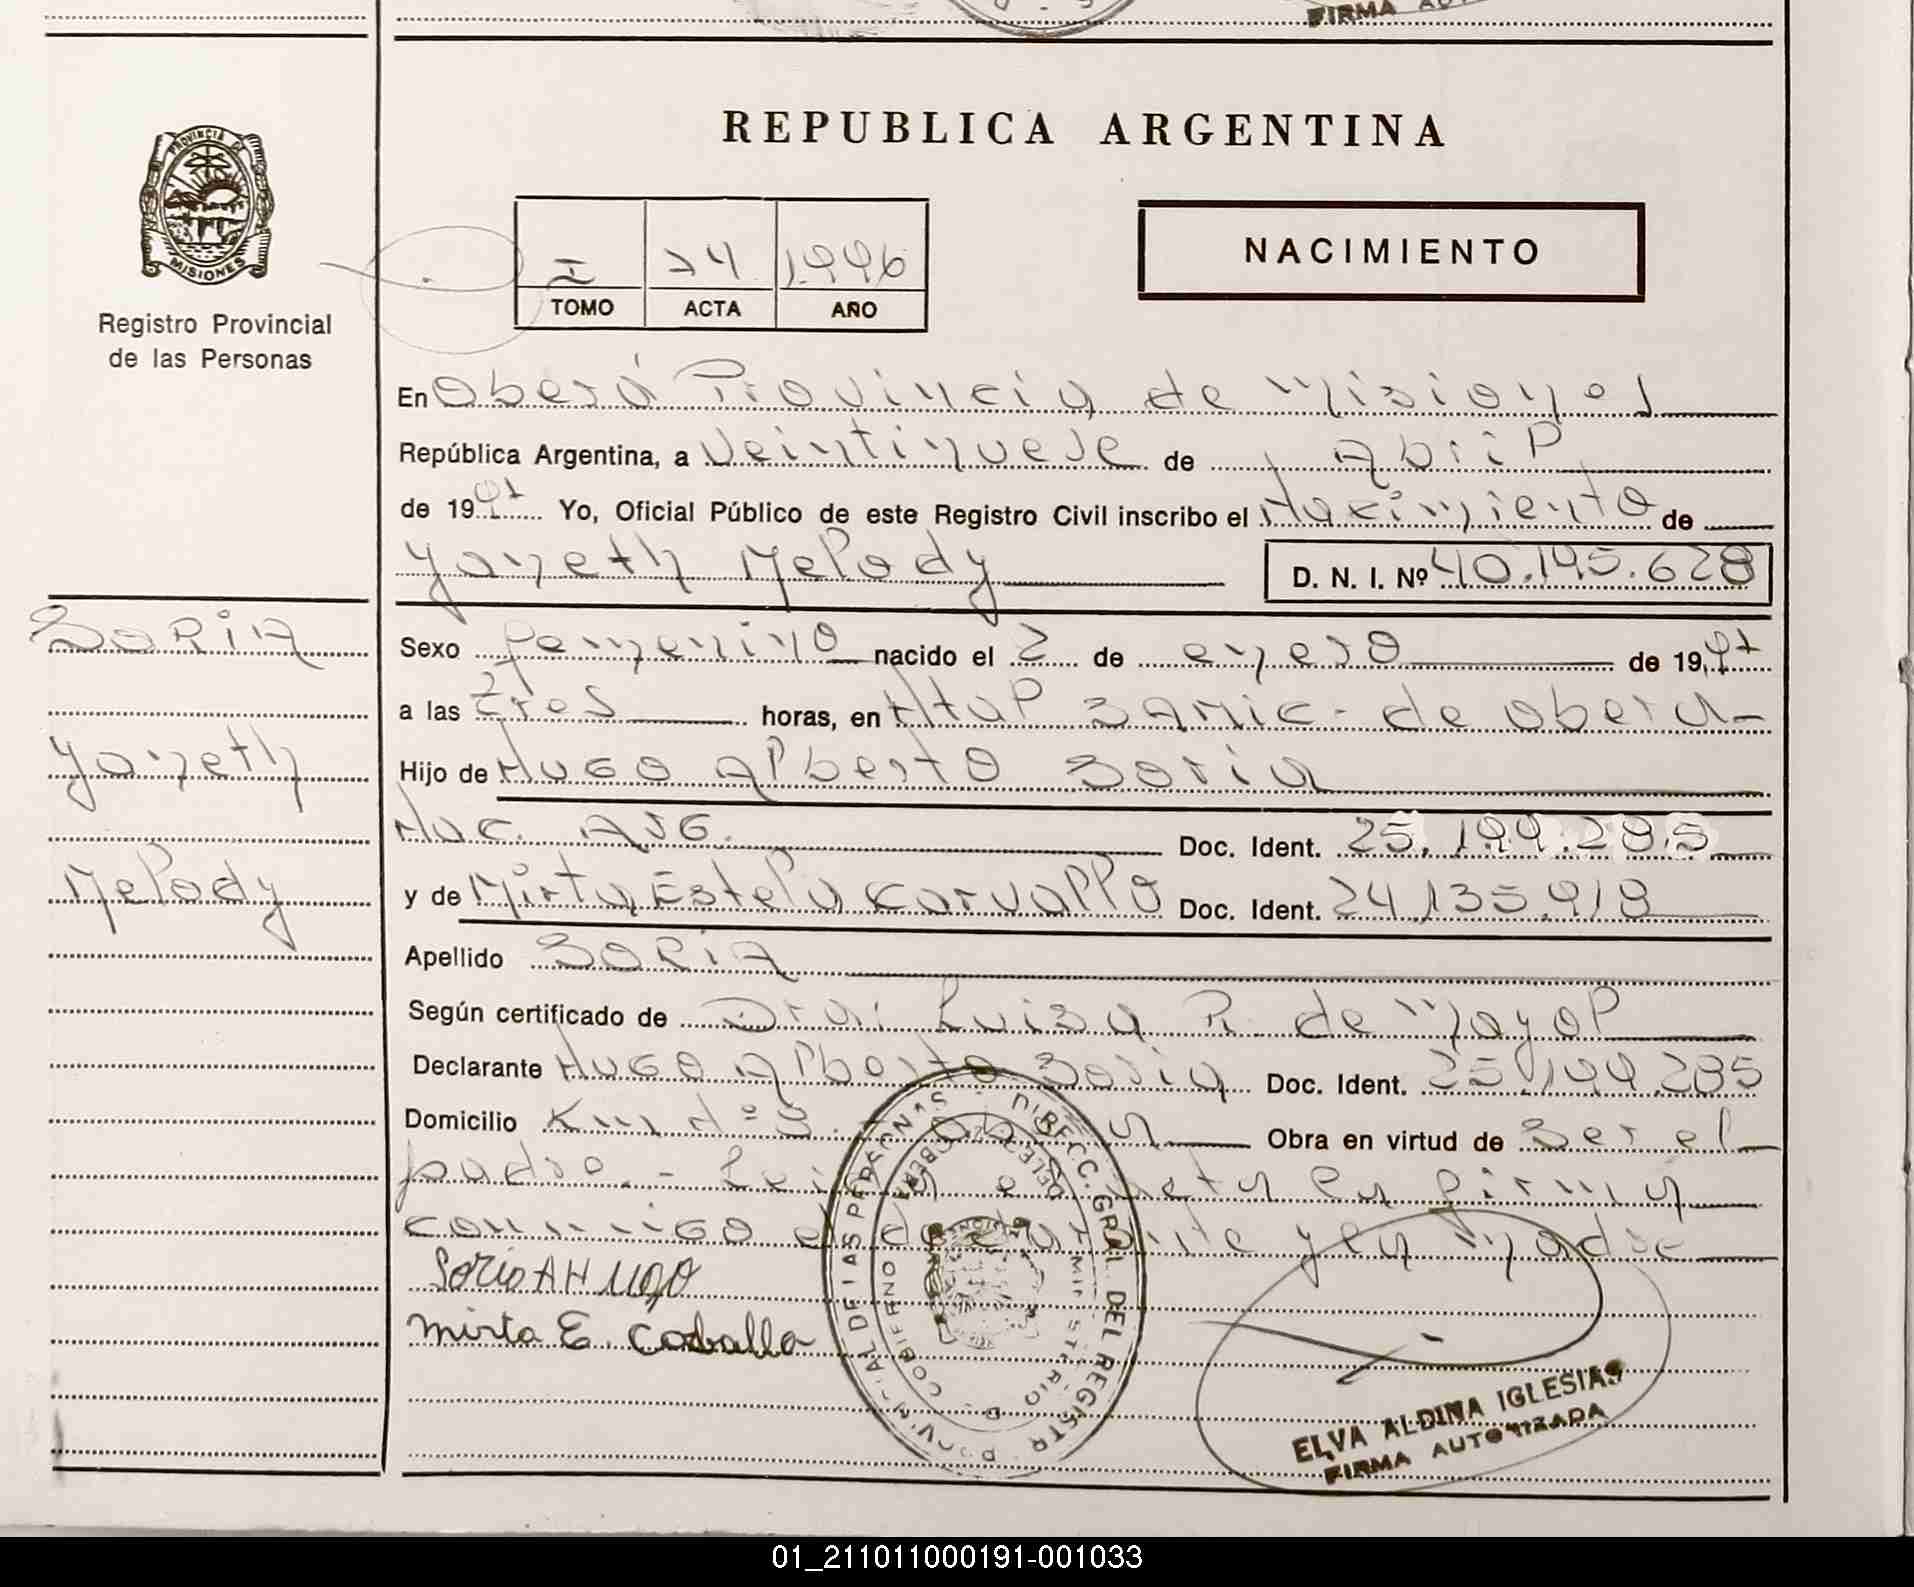 FIRMA
REPUBLICA ARGENTINA
PROVINCIA DE
MISIONES
Registro Provincial
de las Personas
I 74 1996
TOMO ACTA AÑO
NACIMIENTO
En Oberá Provincia de Misiones
República Argentina, a Veintinueve de Abril
de 1997 Yo, Oficial Público de este Registro Civil inscribo el Nacimiento de
Yaneth Melody D. N. I. Nº 40.195.628
SORIA
Yaneth
Melody
Sexo femenino nacido el 2 de enero de 1997
a las tres horas, en Htal SAMIC - de Oberá -
Hijo de Hugo Alberto Soria
Nac. Arg. Doc. Ident. 25.199.285
y de Mirta Estela Carvallo Doc. Ident. 24.135.918
Apellido SORIA
Según certificado de Dra. Luisa R. de Mayol
Declarante Hugo Alberto Soria Doc. Ident. 25.199.285
Domicilio Km nº 8 - Oberá Obra en virtud de Ser el
padre. - Leída el acta la firma
conmigo el declarante y la madre
Soria A Hugo
Mirta E. Caballo
DIRECC. GRAL. DEL REGISTR PROVINCIAL DE LAS PERSONAS
MINISTERIO D GOBIERNO
DELEG. OBERA
ELVA ALDINA IGLESIAS
FIRMA AUTORIZADA
01_211011000191-001033